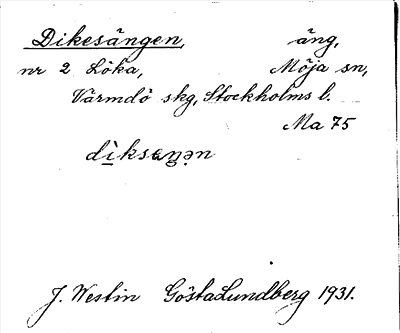 Dikesängen, äng,
nr 2 Löka, Möja sn,
Värmdö skg, Stockholms l.
Ma 75
J. Westin Gösta Lundberg 1931.